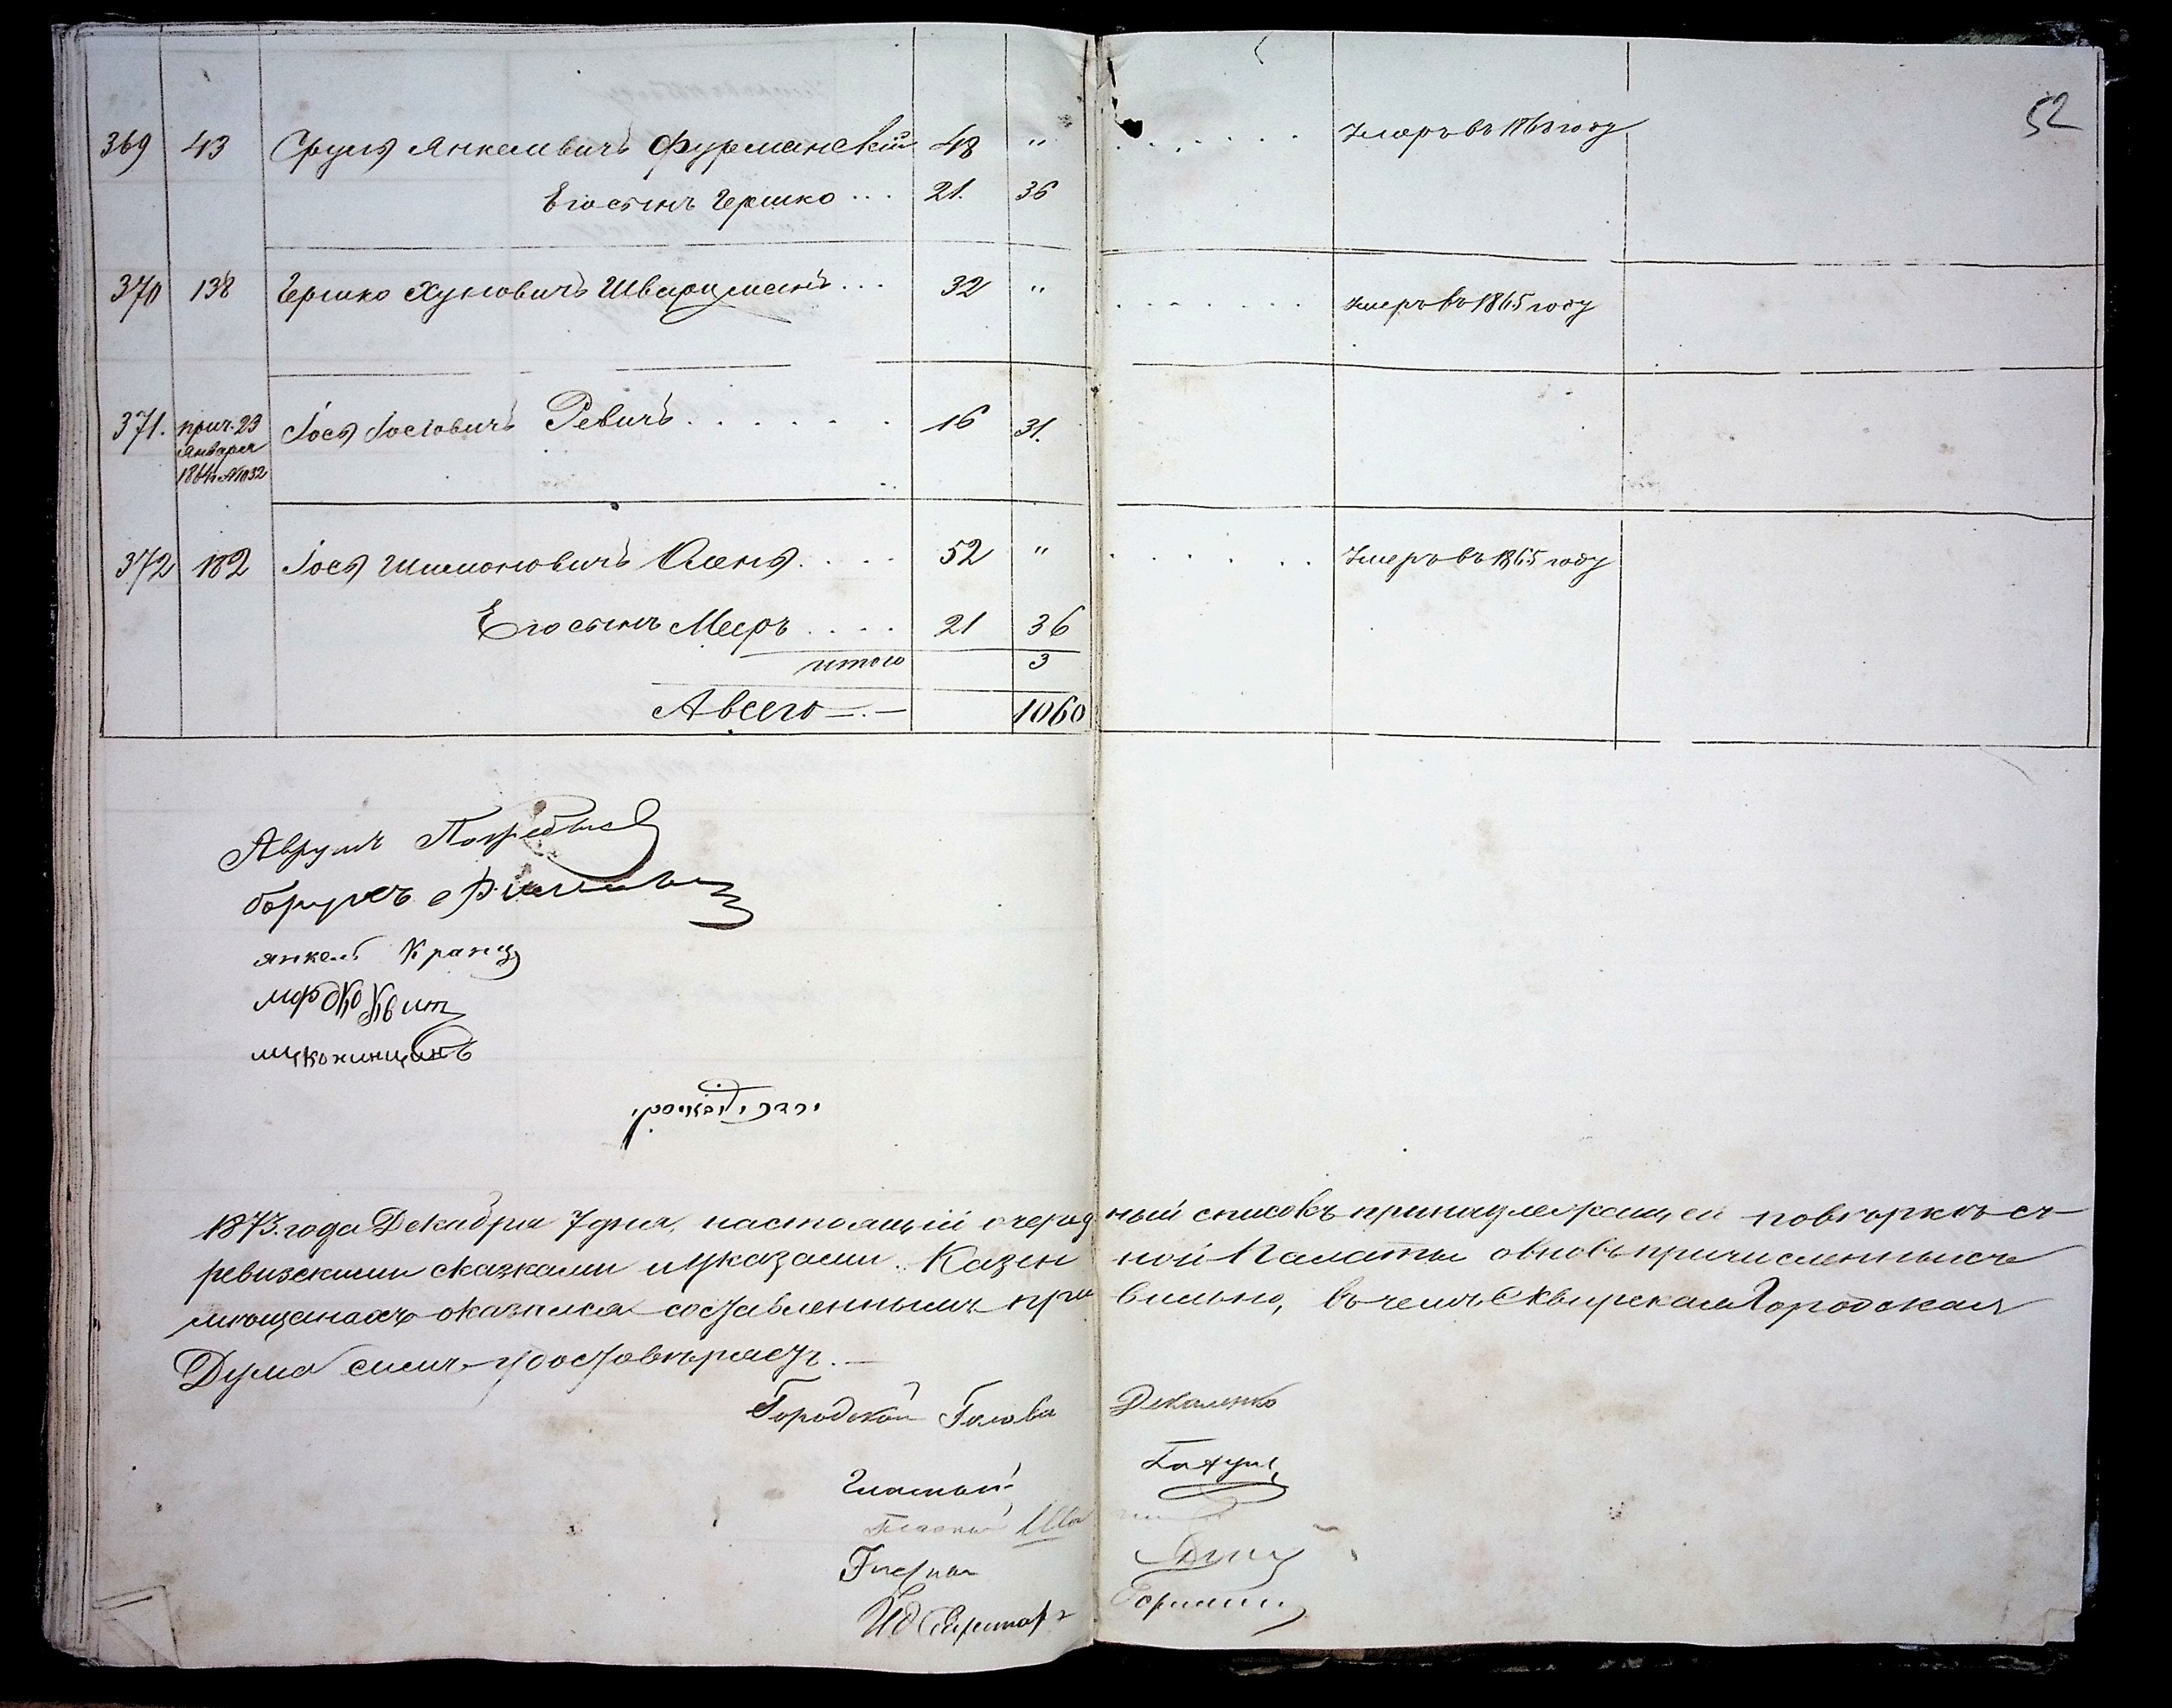 52
369 43 Сруль Янкелевичъ Фурманскій 48 " . . . . . . Умеръ въ 1863 году
Его сынъ Гершко ... 21. 36
370 138 Гершко Хуновичъ Шварцманъ ... 32 " . . . . . . Умеръ въ 1865 году
371. прич. 23 Января 1864 № 1032 Іось Іосіовичъ Ревичъ . . . . . . 16 31.
372 182 Іось Шимоновичъ Кленъ . . . . 52 " . . . . . . Умеръ въ 1865 году
Его сынъ Мееръ . . . . 21 36
итого 3
А всего 1060
Аврумъ
борухъ
янкель Кранц
мордко Квит
1873. года Декабря 7 дня, настоящій очередный списокъ принадлежащей повѣркѣ съ
ревизскими сказками и указами Казенной Палаты о вновь причисленныхъ
мѣщанахъ оказался составленнымъ правильно, въ чемъ Сквирская Городская
Дума симъ удостовѣряетъ. —
Городской Голова
Гласный
Гласный
Гласный
ИД Секретаря